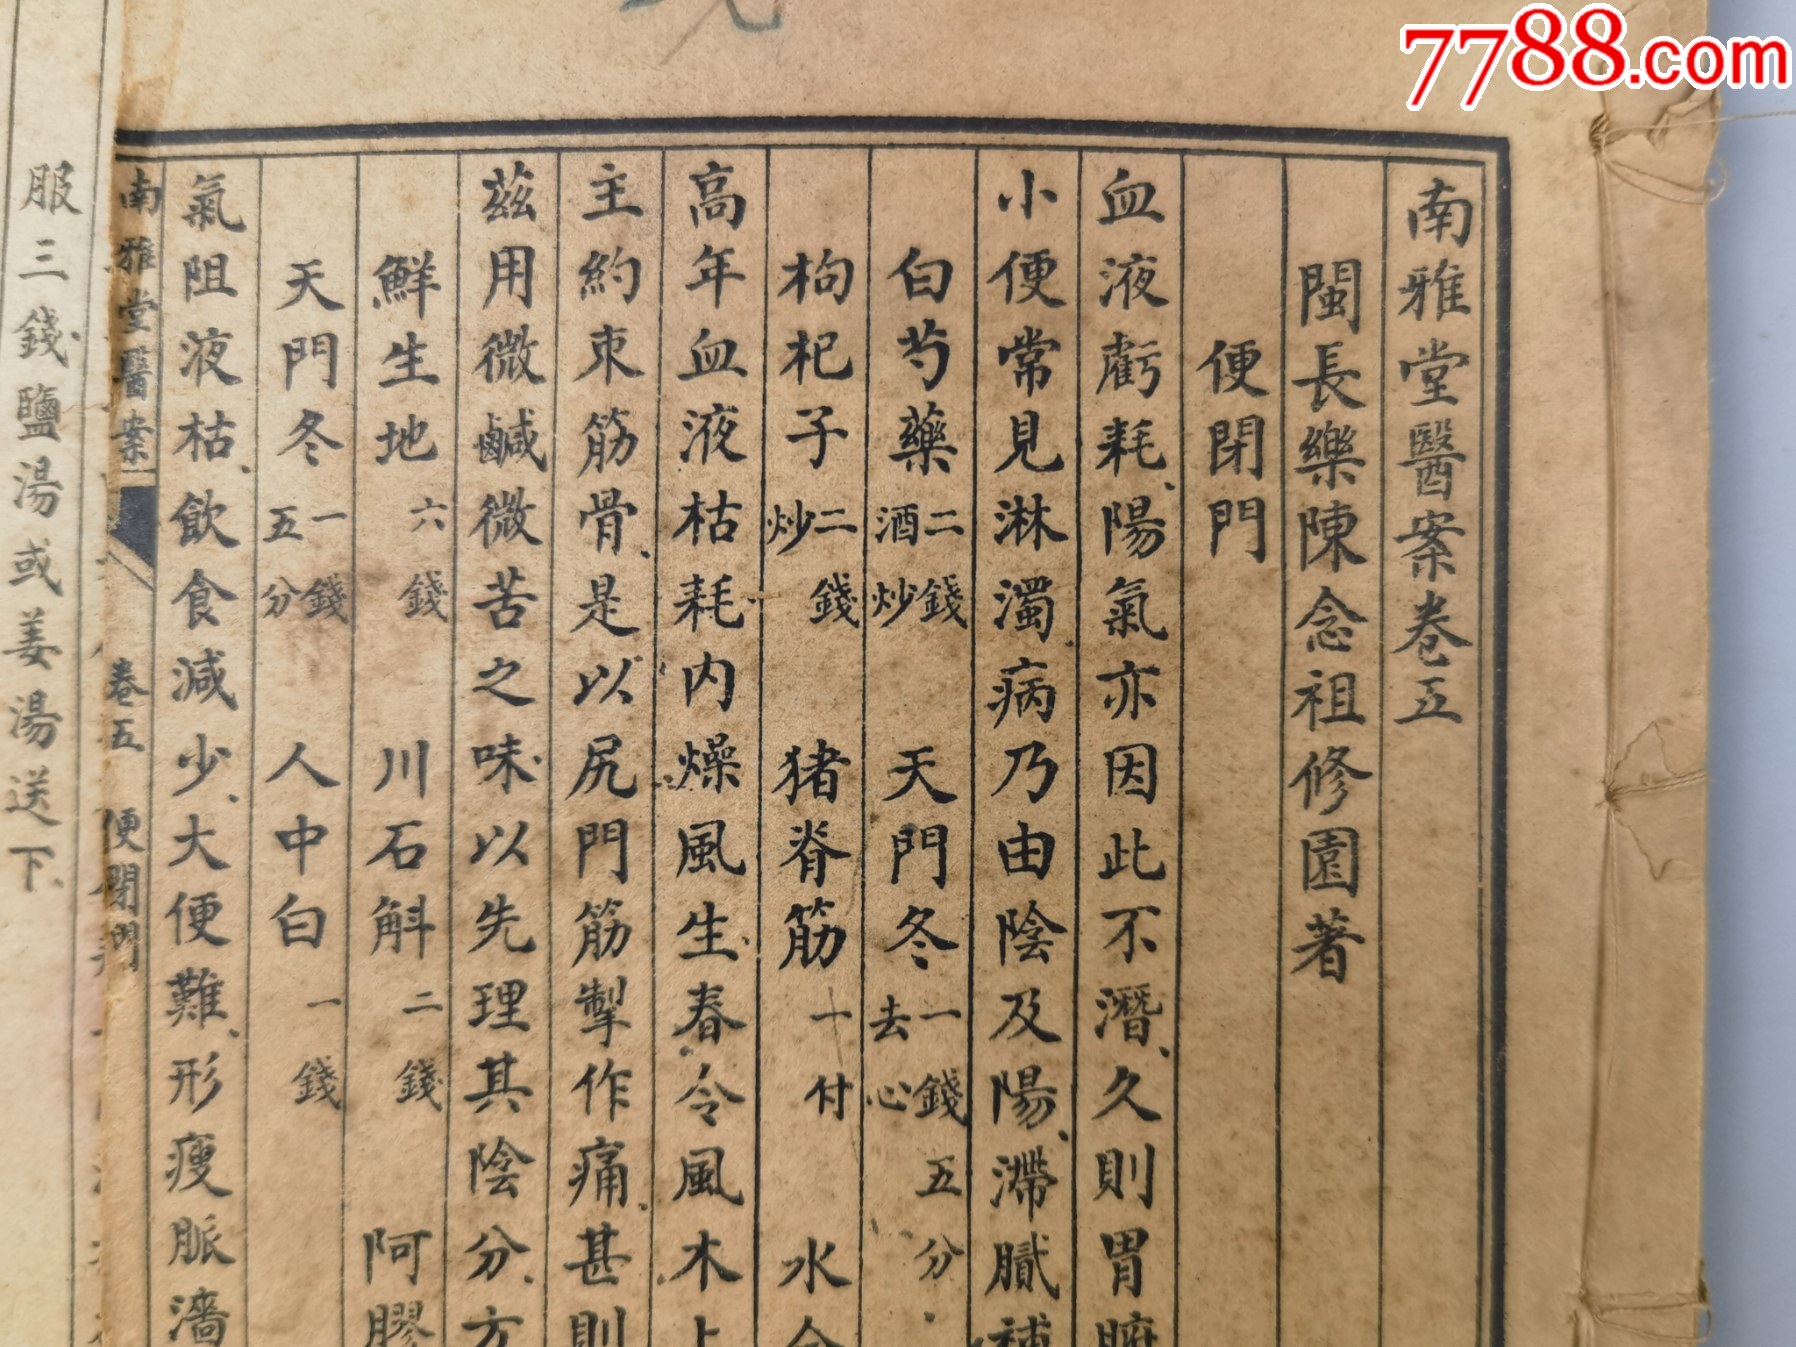 7788.com
南雅堂醫案卷五
閩長樂陳念祖修園著
便閉門
血液虧耗、陽氣亦因此不潛、久則胃腑
小便常見淋濁、病乃由陰及陽、滯膩補
白芍藥二錢酒炒 天門冬一錢五分去心
枸杞子二錢炒 猪脊筋一付 水
高年血液枯耗、内燥風生、春令風木上
主約束筋骨、是以尻門筋掣作痛、甚則
茲用微鹹微苦之味、以先理其陰分、方
鮮生地六錢 川石斛二錢 阿膠
天門冬一錢五分 人中白一錢
氣阻液枯、飲食減少、大便難、形瘦脈濇
南雅堂醫案 卷五 便閉門
服三錢、鹽湯或姜湯送下、